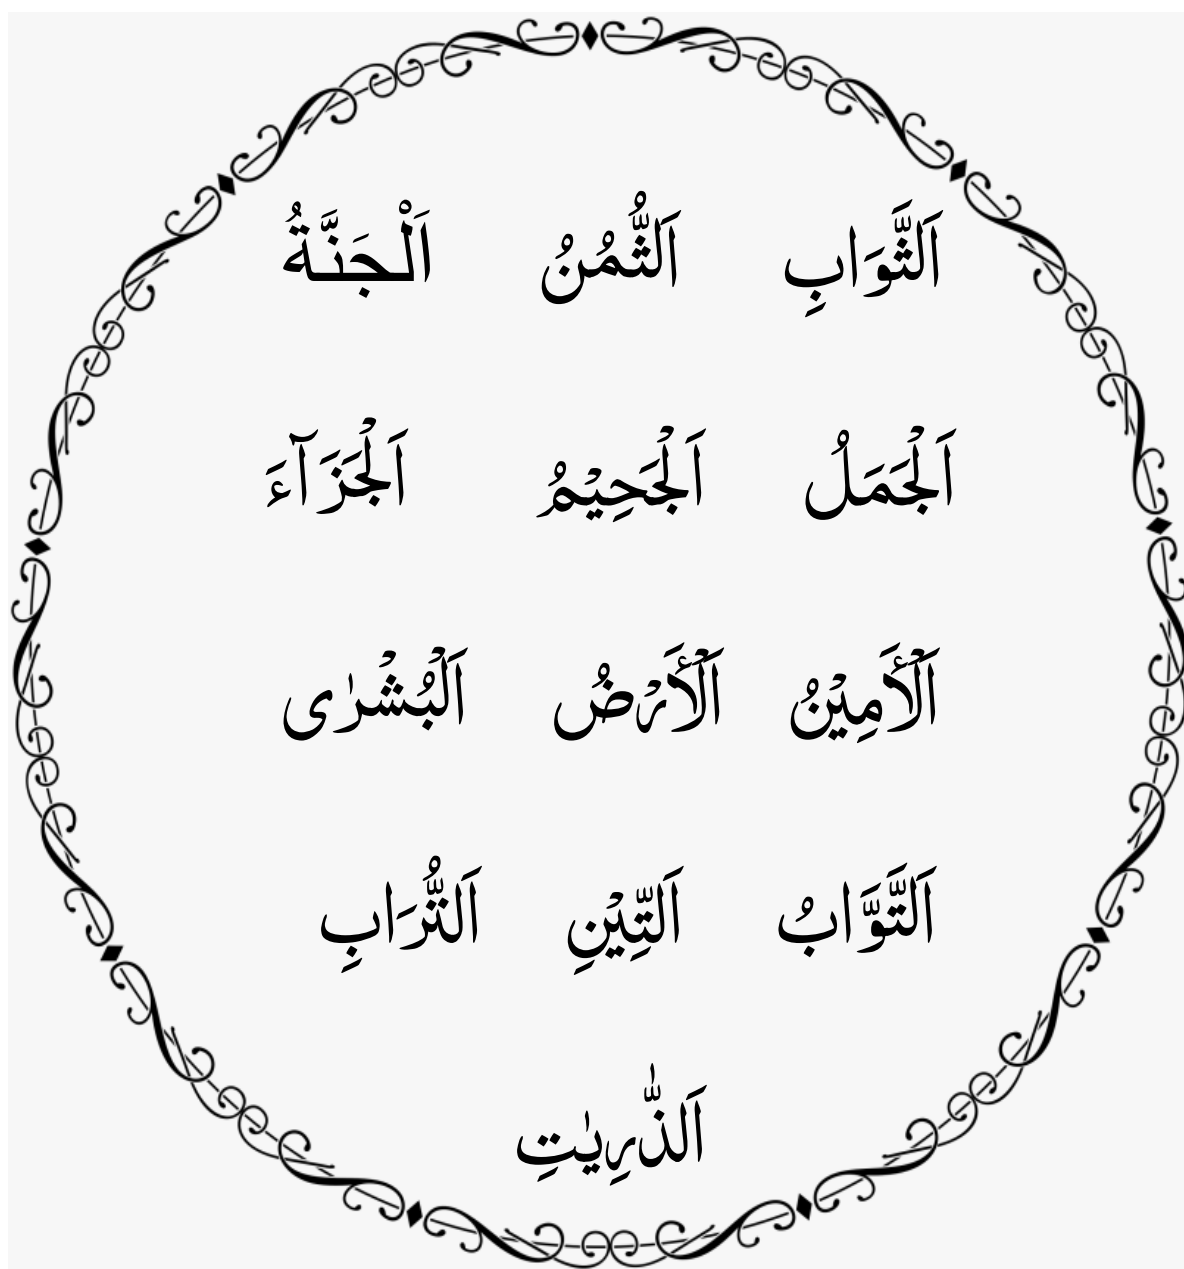 اَلثَّوَابِ اَلثُّمُنُ اَلْجَنَّةُ
اَلْجَمَلُ اَلْجَحِيْمُ اَلْجَزَآءَ
اَلْأَمِيْنُ اَلْأَرْضُ اَلْبُشْرٰى
اَلتَّوَّابُ اَلتِّيْنِ اَلتُّرَابِ
اَلذّٰرِيٰتِ